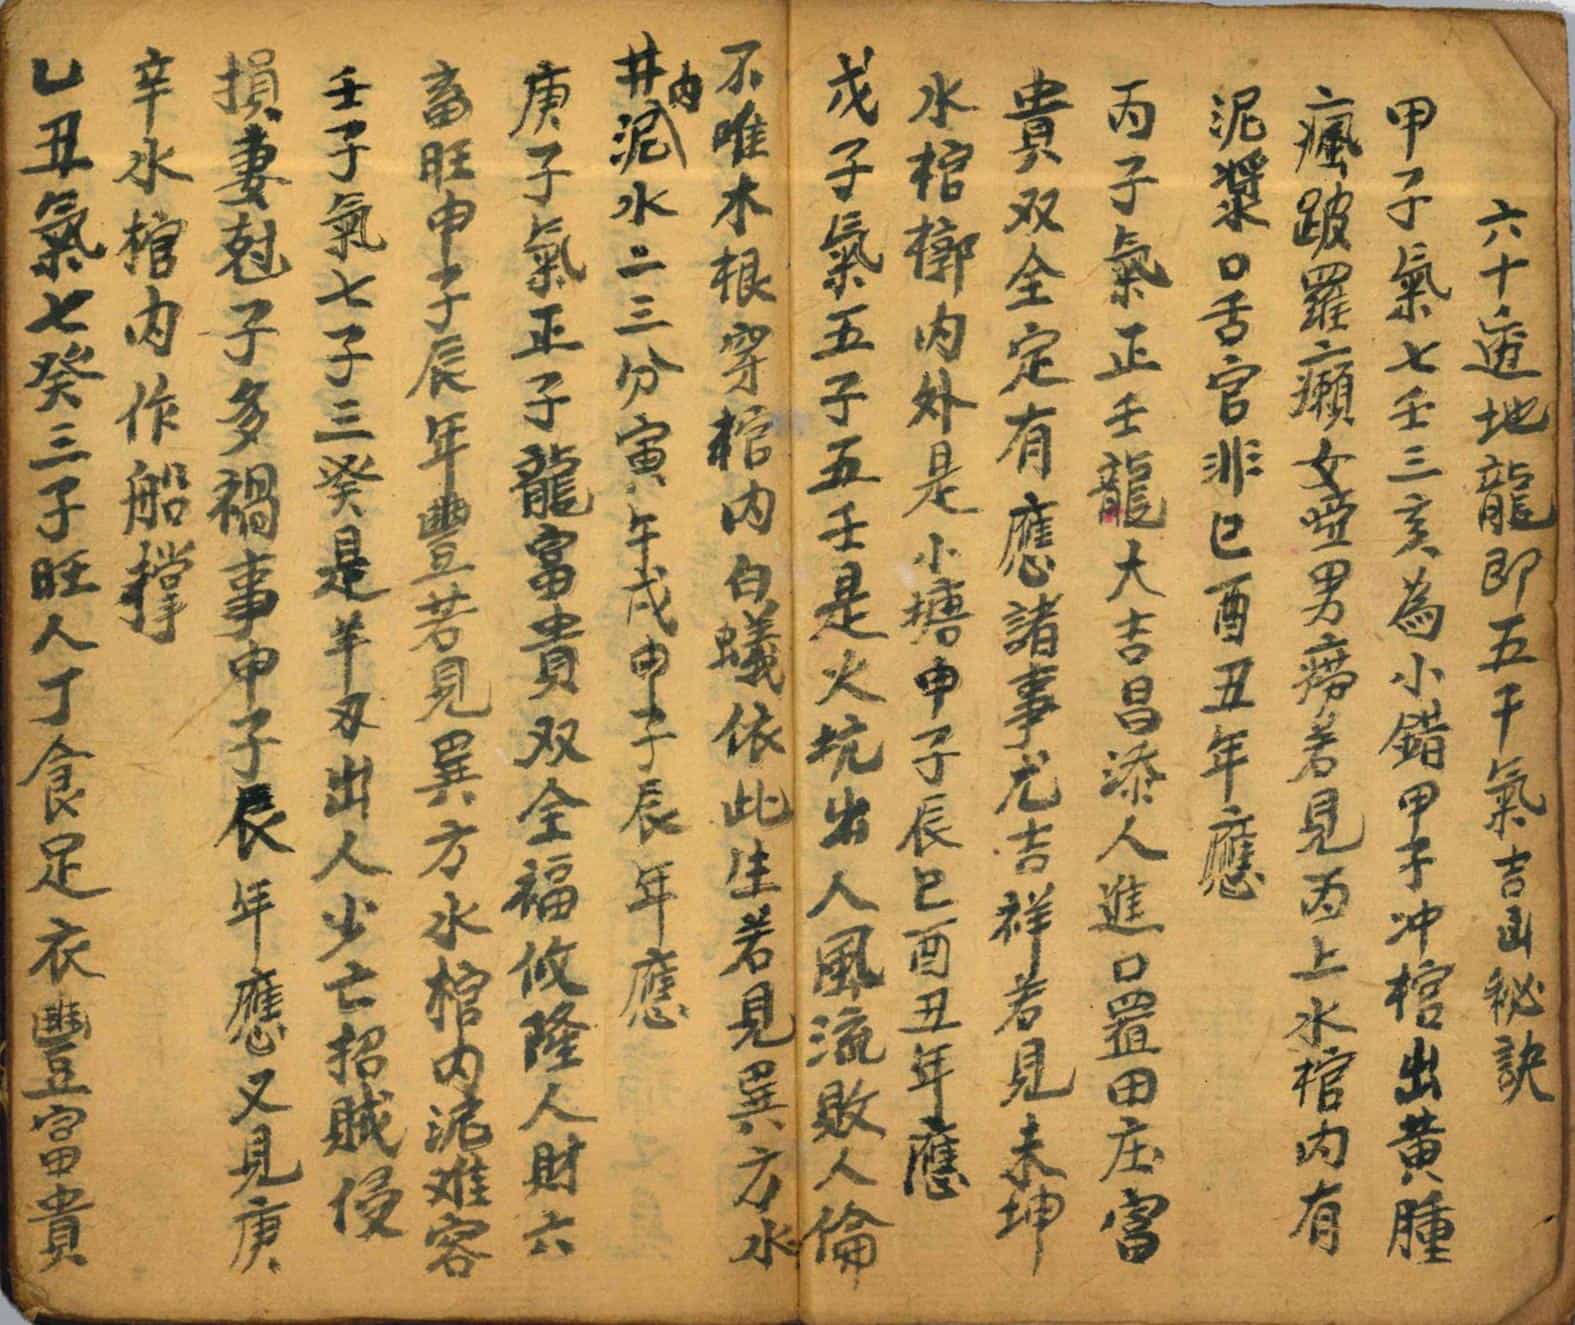 六十透地龍即五干氣吉凶秘訣
甲子氣七壬三亥為小錯甲子冲棺出黃腫
瘋跛羅癩女啞男癆若見丙上水棺内有
泥漿口舌官非巳酉丑年應
丙子氣正壬龍大吉昌添人進口置田庄富
貴双全定有應諸事尤吉祥若見未坤
水棺槨内外是小塘申子辰巳酉丑年應
戊子氣五子五壬是火坑出人風流敗人倫
不唯木根穿棺内白蟻依此生若見巽方水
井内泥水二三分寅午戌申子辰年應
庚子氣正子龍富貴双全福攸隆人財六
畜旺申子辰年豐若見巽方水棺内泥难容
壬子氣七子三癸是羊刃出人少亡招賊侵
損妻尅子多禍事申子辰年應又見庚
辛水棺内作船撑
乙丑氣七癸三子旺人丁食足衣豐富貴